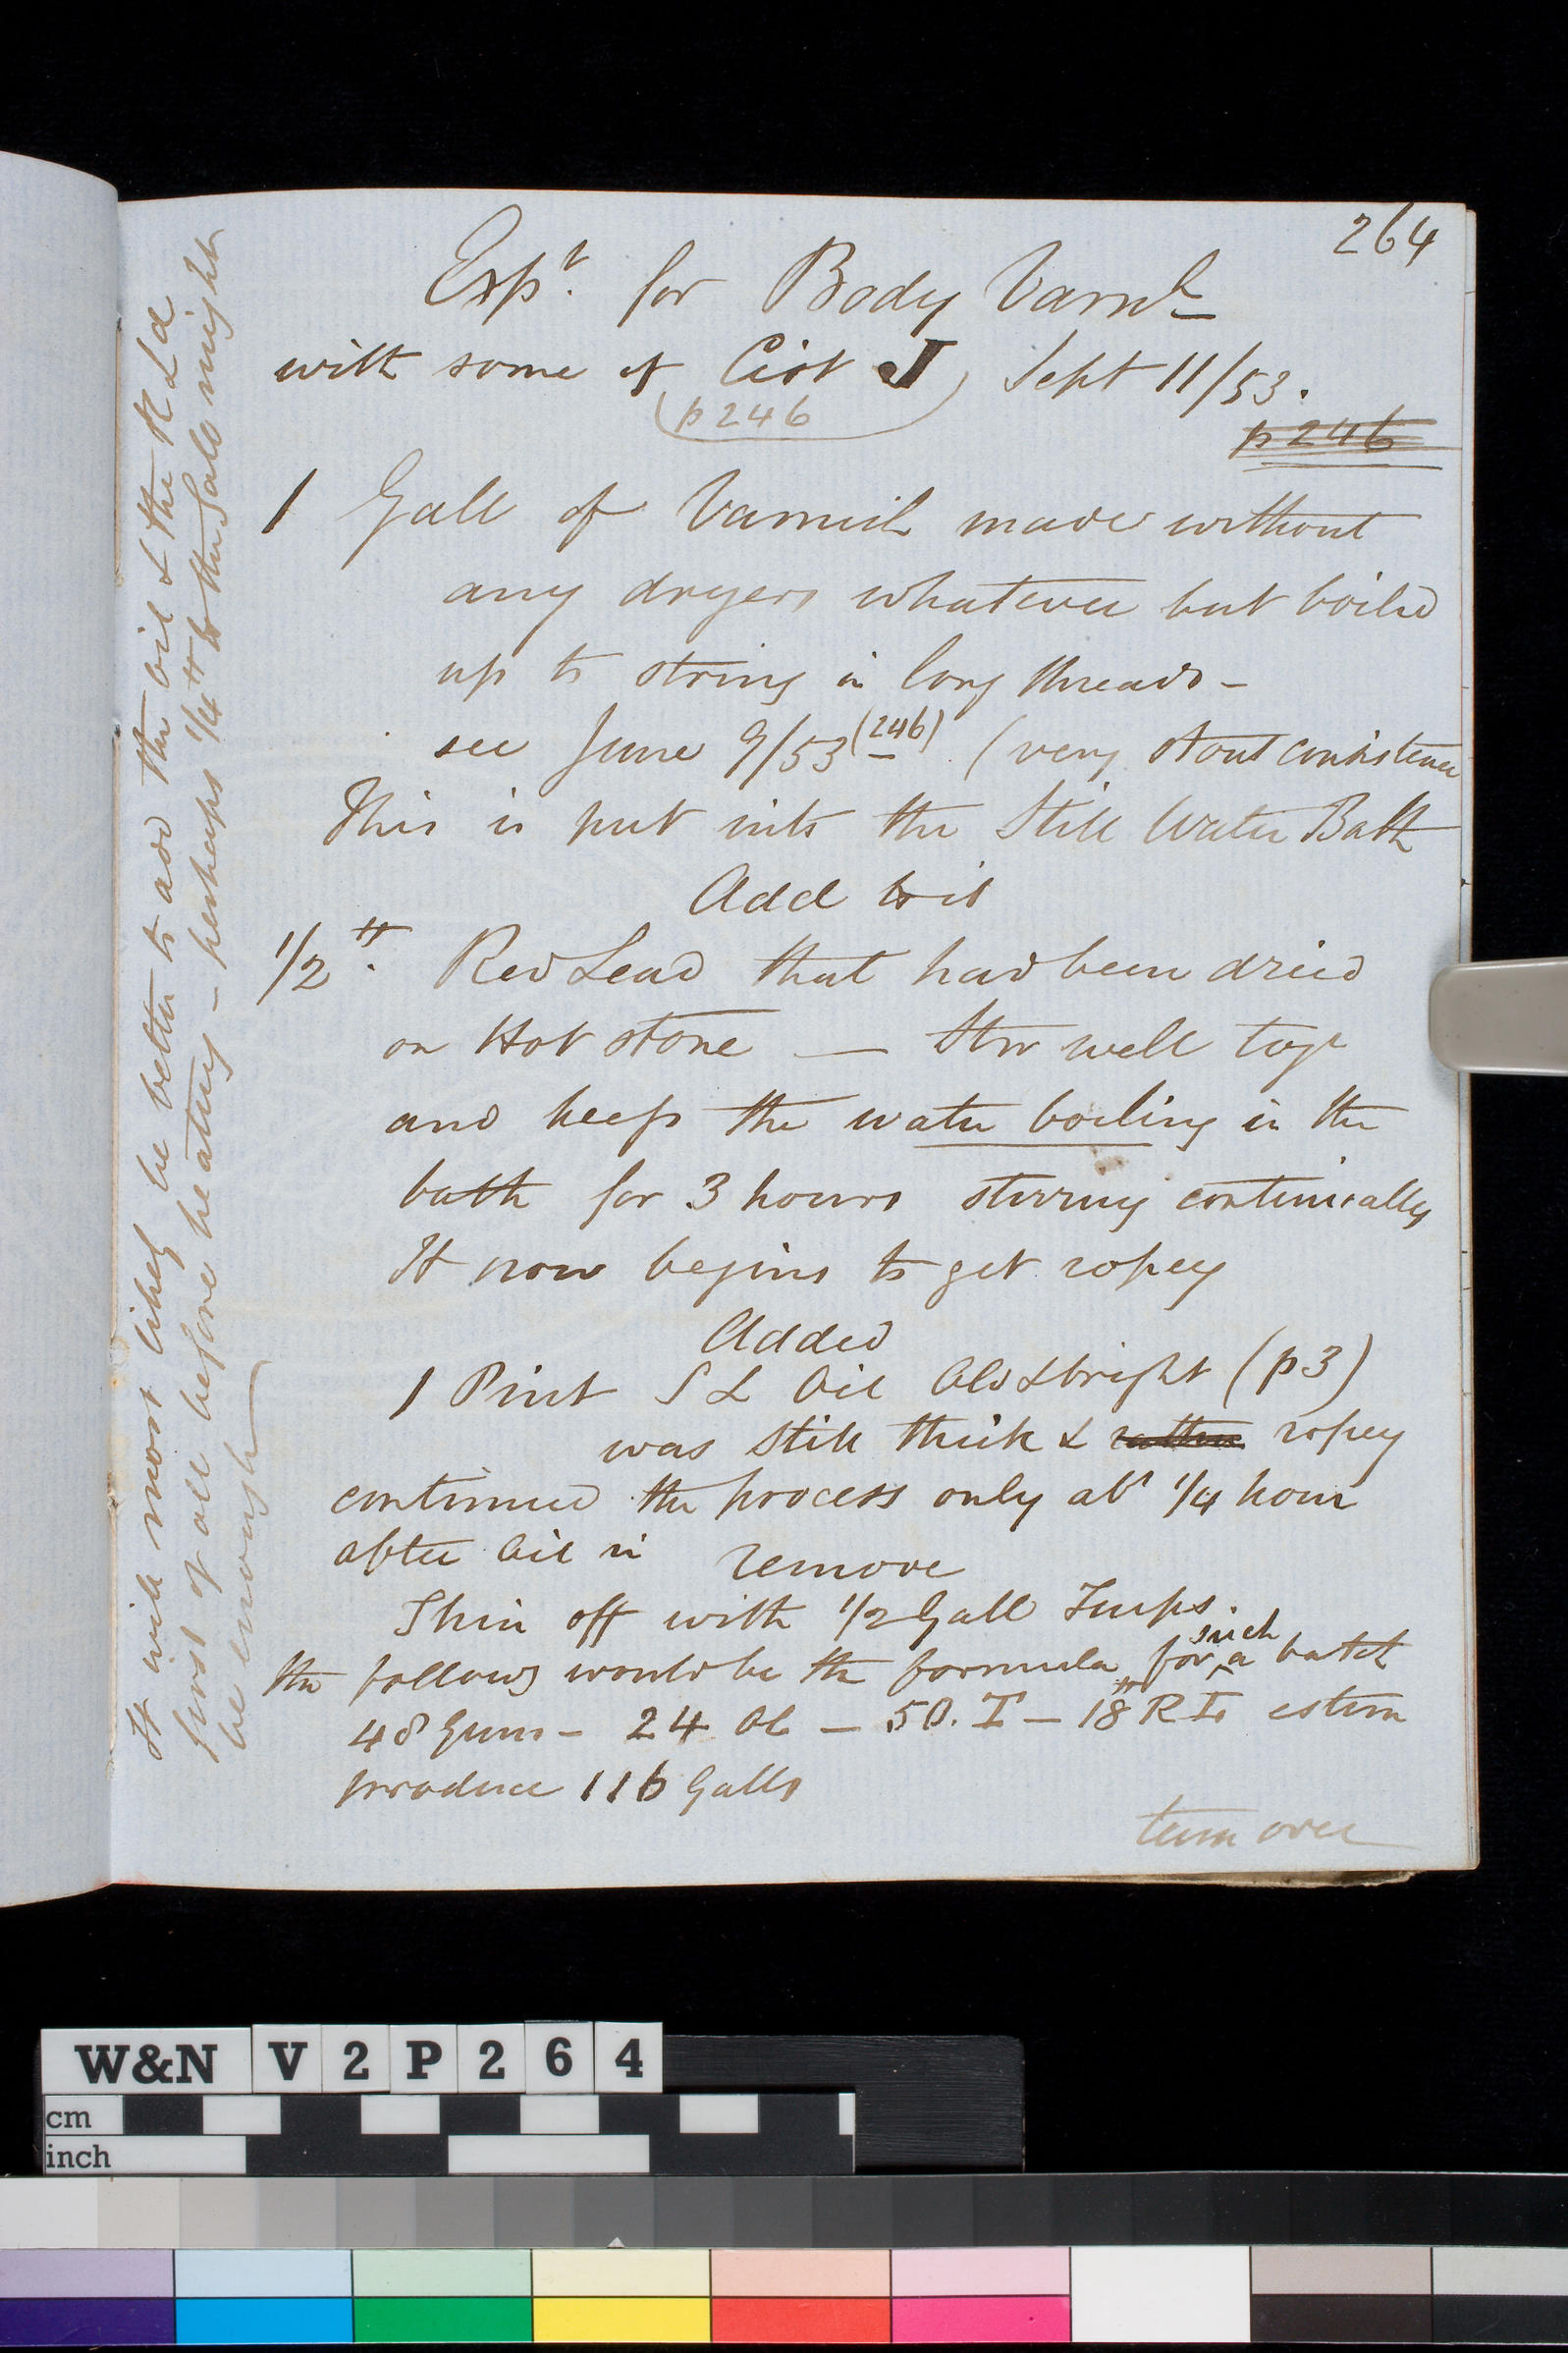 264
Expt. for Body Varnh
with some of Cist J Sept 11/53.
(p 246)
p 246
1 Gall of Varnish made without
any dryers whatever but boiled
up to string in long threads -
see June 9/53 (246) (very stout consistence
This is put into the Still Water Bath
Add to it
1/2 lb. Red Lead that had been dried
on Hot stone — Stir well togr
and keep the water boiling in the
bath for 3 hours stirring continually
It now begins to get ropey
Added
1 Pint S L Oil Old & bright (p 3)
was still thick & rather ropey
continued the process only abt 1/4 hour
after oil in remove
Thin off with 1/2 Gall Turps.
the follows would be the formula for such a batch
48 Gum - 24 Oil — 50. T — 18 lb R L estim
produce 116 Galls
turn over
It will most likely be better to add the oil & the R Ld
first of all before heating - perhaps 1/4 lb to the Gall might
be enough
W&N V2P264
cm
inch